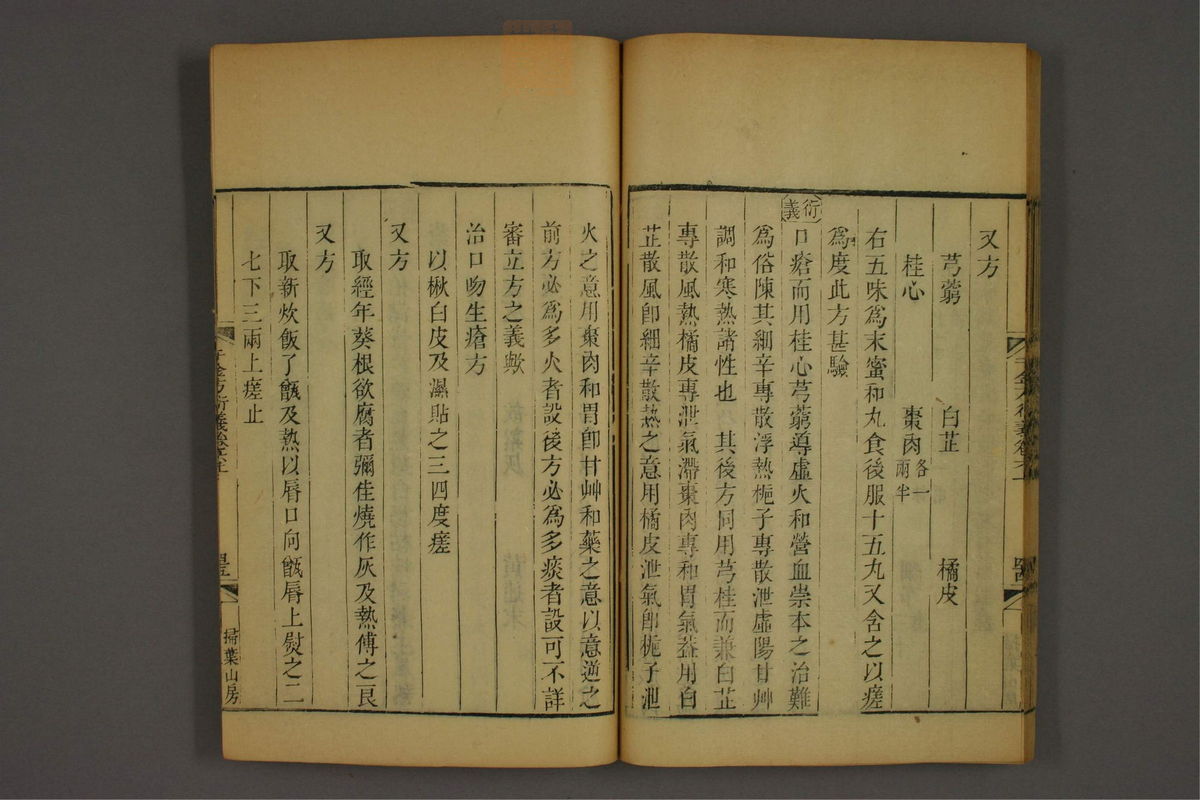 又方
芎藭 白芷 橘皮
桂心 棗肉各一兩半
右五味爲末蜜和丸食後服十五丸又含之以瘥
爲度此方甚驗
衍義
口瘡而用桂心芎藭導虛火和營血祟本之治難
爲俗陳其細辛專散浮熱梔子專散泄虛陽甘艸
調和寒熱諸性也 其後方同用芎桂而兼白芷
專散風熱橘皮專泄氣滯棗肉專和胃氣葢用白
芷散風卽細辛散熱之意用橘皮泄氣卽梔子泄
火之意用棗肉和胃卽甘艸和藥之意以意逆之
前方必爲多火者設後方必爲多痰者設可不詳
審立方之義歟
治口吻生瘡方
以楸白皮及濕貼之三四度瘥
又方
取經年葵根欲腐者彌佳燒作灰及熱傅之良
又方
取新炊飯了甑及熱以唇口向甑唇上熨之二
七下三兩上瘥止
千金方衍義卷六上
掃葉山房